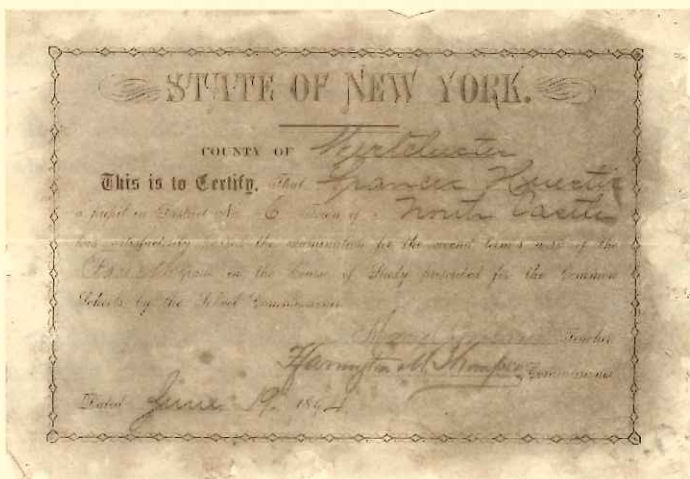 STATE OF NEW YORK.
COUNTY OF Westchester
This is to Certify, That Frances
a pupil in District No. 6 Town of North Castle
has satisfactorily passed the examination for the second term's work of the
Grade in the Course of Study prescribed for the Common
Schools by the School Commissioner
Teacher
Harrington M. Thompson Commissioner
Dated June 19 189